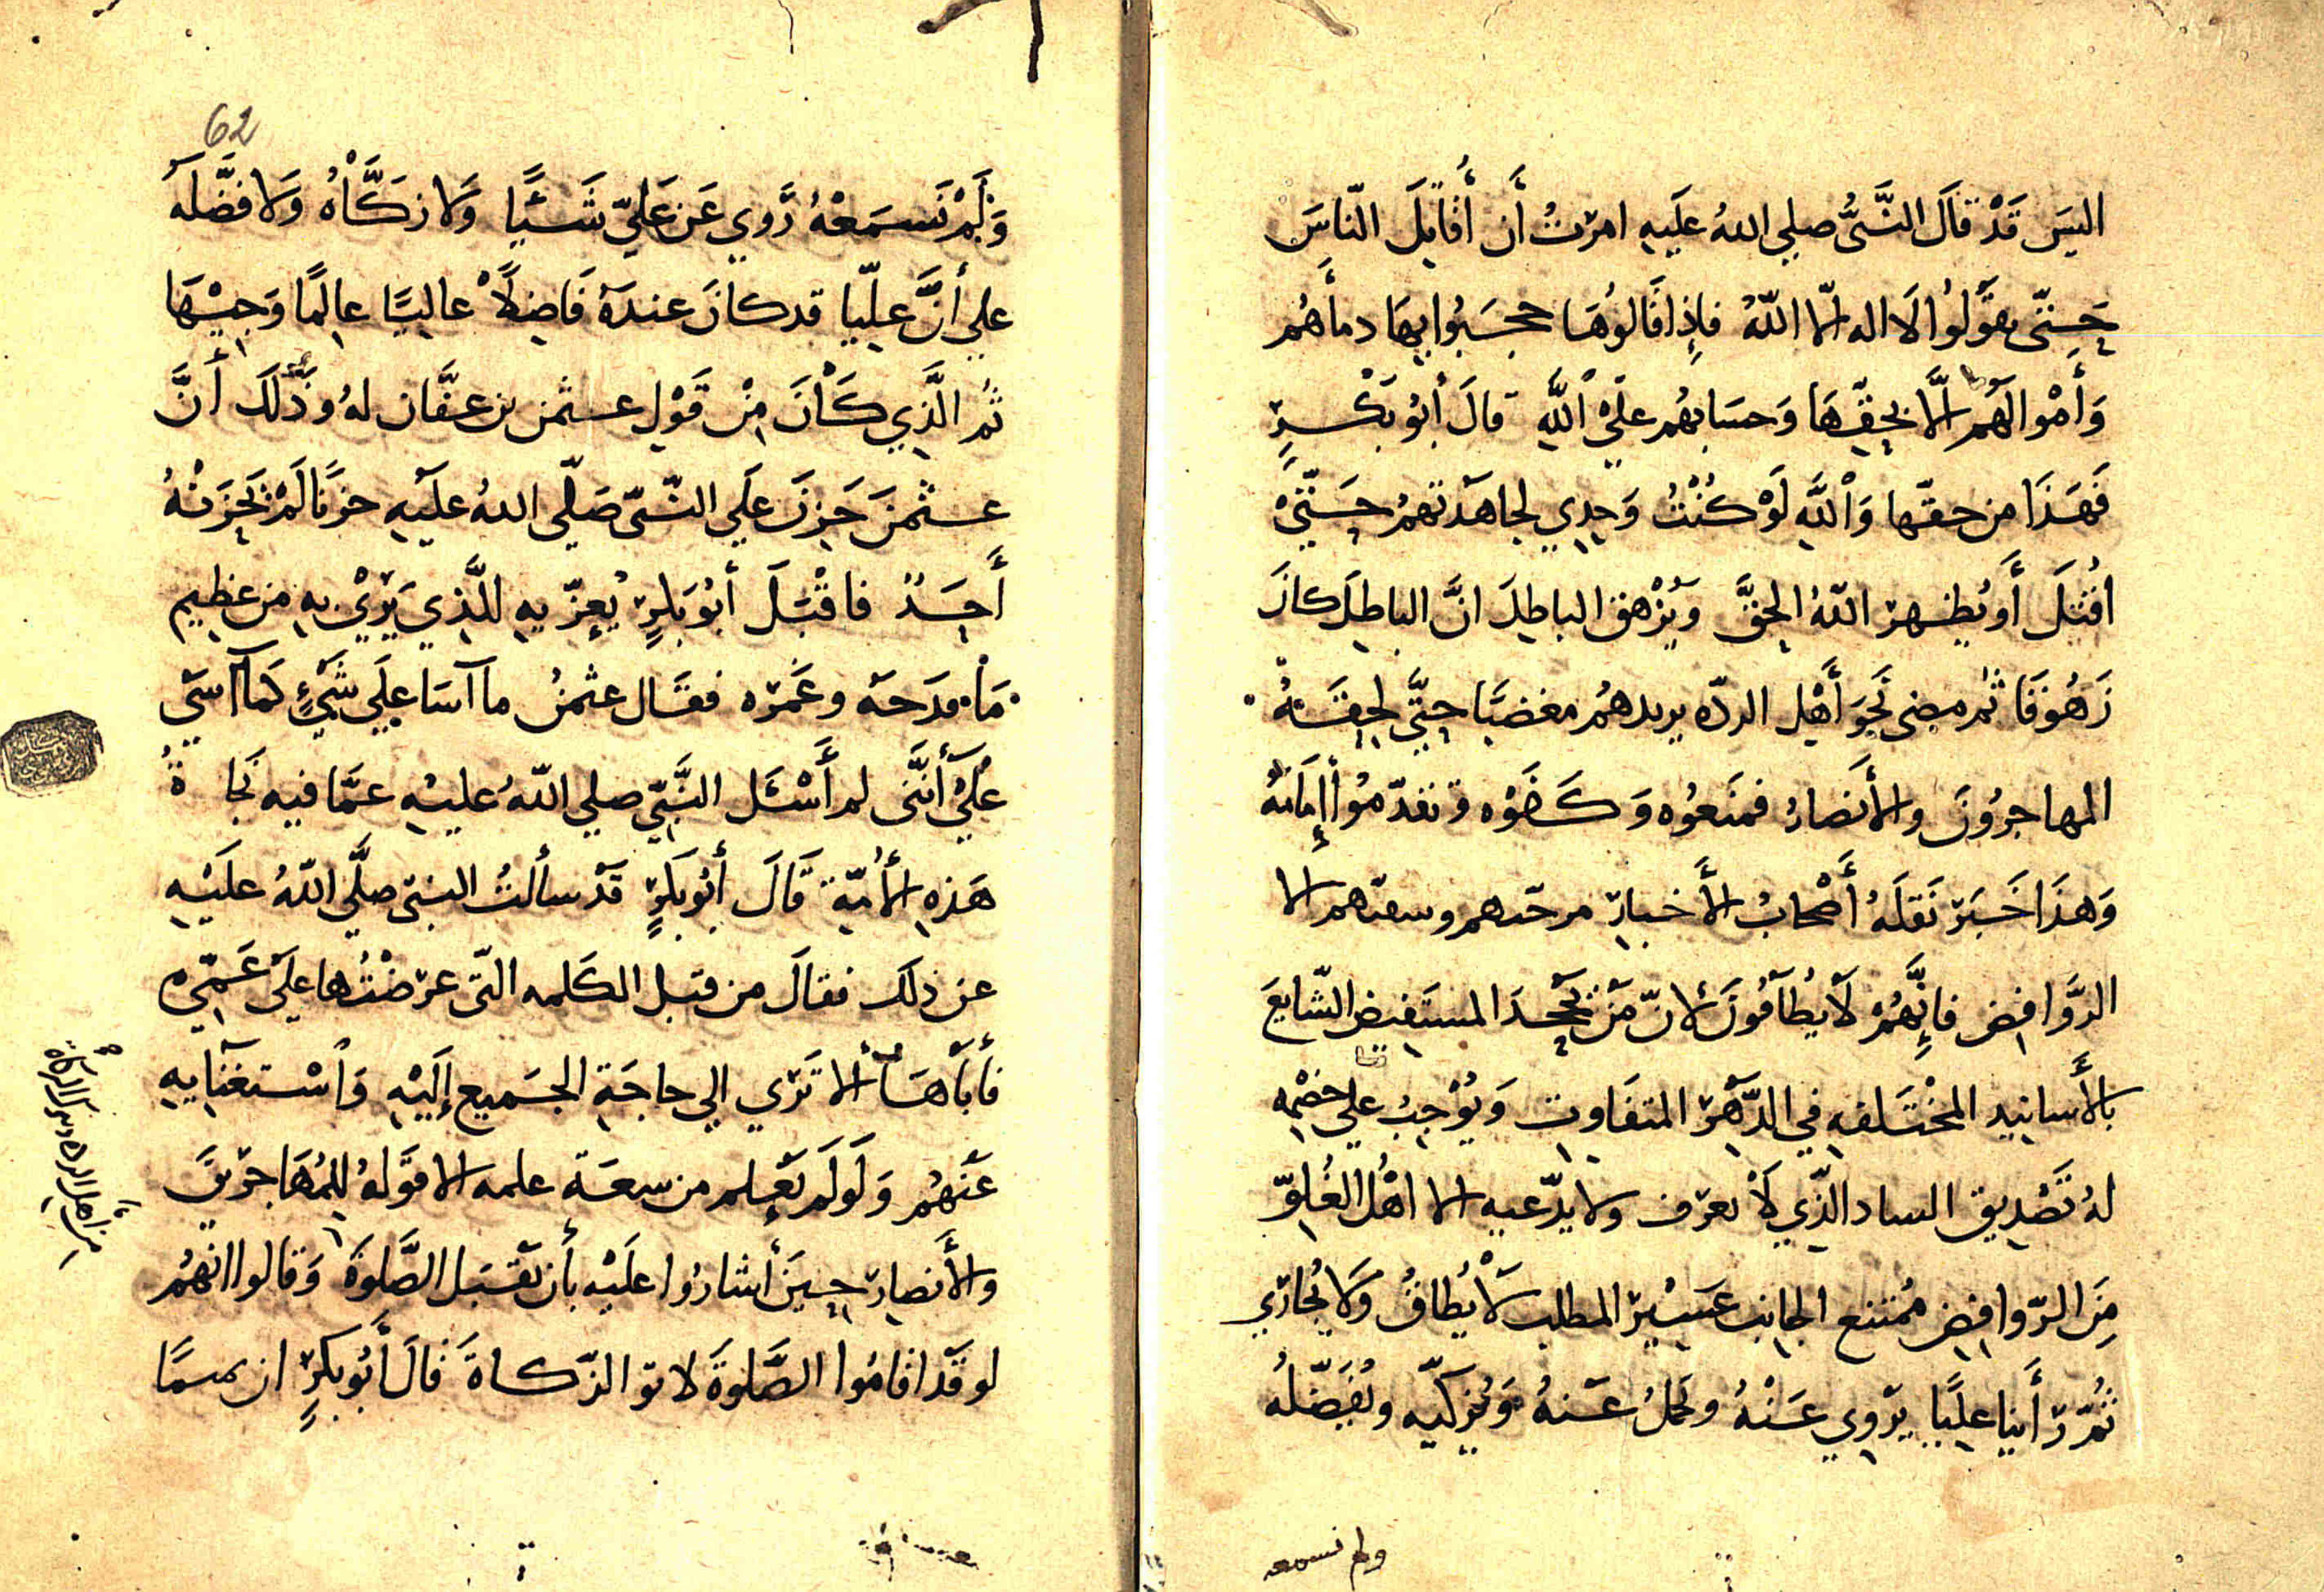 اليس قَدْ قالَ النَّبيُّ صلي اللهُ عليه امرْتُ أَن أُقاتِلَ النّاسَ
حَتّي يقوَلُوا لَا اله الّا اللّهُ فإذا قَالوُهَا حجبُوا بهَا دمأَهُم
وَأَمْوالهَم الَّا بحِقّهَا وَحسَابهُم علَي اللَّهِ قالَ أبُو بَكْرٍ
فَهَذَا من حقّها وَاللَّهِ لَوْ كُنْتُ وَحدِي لجاهَدتهمُ حَتّيَ
اُقْتَلَ أَو يُظهر اللّهُ الحقَّ وَيُزْهق الباطِلَ انَّ الباطِلَ كانَ
زَهُوقَا ثمُ مضى نحَوَ أَهْلِ الردّه يريدهُم مغضبًا حتَّي لحِقَتهُ
المهاجرُونَ والأَنصارُ فمنَعوُه وَكَفوْه وتقدّموُا أمَامَهُ
وَهذَا خَبَر نَقَلَهُ أَصْحابُ الأَخبار مرجئهم وشيعتهم الا
الرَّوافض فإنَّهُمْ لَا يُطَاقُونَ لانّ مَنْ يَجْحدَ المستَفيض الشّايعَ
بالأَسانيد المخْتَلفهِ في الدّهَرْ المتفَاوت وَيُوْجبُ علي خصْمِه
لهُ تَصْديق الشاد الذّي لَا يعرَف ولا يدّعيه الا اهْل الغُلوّ
مِنَ الرّوافض مُمْتنع الجانِب عَسْير المطلب لَا يُطاقُ وَلا يُجارَي
ثُمّ رَأَينا عليًّا يرْوِي عَنْهُ ويَحملُ عَنهُ وَيُزكيّه ويُفَضّلهُ
ولم نسمعه
62
وَلَمْ نَسمَعْهُ رَوي عَن عَليّ شَيئًا وَلا زكَّاهُ وَلا فضَّلهَ
علي أَنَّ عليّا قد كانَ عندَهُ فَاضِلًا عاليًا عالمًا وَجيْهَا
ثُم الَّذِي كَانَ منْ قَوْلِ عثمن بن عفَّان لهُ وذَلَكَ أَنَّ
عثمنَ حَزِنَ علَي النّبيّ صَلّي اللهُ عليَهِ حزنًا لَمْ يَحْزَنْهُ
أَحَدٌ فاقْبَلَ أبُو بَكرٍ يُعزّيهِ للَّذِي يَرَيْ بهِ من عظيِم
مَا قدَحهَ وغَمَرَه فقَال عثمنُ ما آسَا علَي شَيْءٍ كَمَا آسَي
علَيْ أَنَّنَى لم أَسْئَل النَّبيّ صلي اللّهُ عليْهِ عمَّا فيه نجَاةُ
هَذهِ الأُمّةِ قَالَ أبُو بَكرٍ قَدْ سألتُ النبيّ صلَّي اللّهُ علَيْهِ
عن ذلكَ فقالَ من قبل الكَلمه التّي عرَضْتُها علَيْ عَمّي
فأَبَأهَا ألا تَرَي الي حاجَةِ الجَميعِ إلَيْهِ وَاسْتغنآيهِ
عَنْهُم وَلَوَ لَم يَعْلم من سِعَة علمه الا قوَلهُ للمُهَاجريَن
والأَنصار حينَ أشارُوا علَيْه بأن يقبَل الصَّلوةَ وَقالوا انهُم
لو قَدْ اقامُوا الصَّلوةَ لاتو الزّكاةَ قالَ أَبُو بكرٍ ان
من اهل الرده